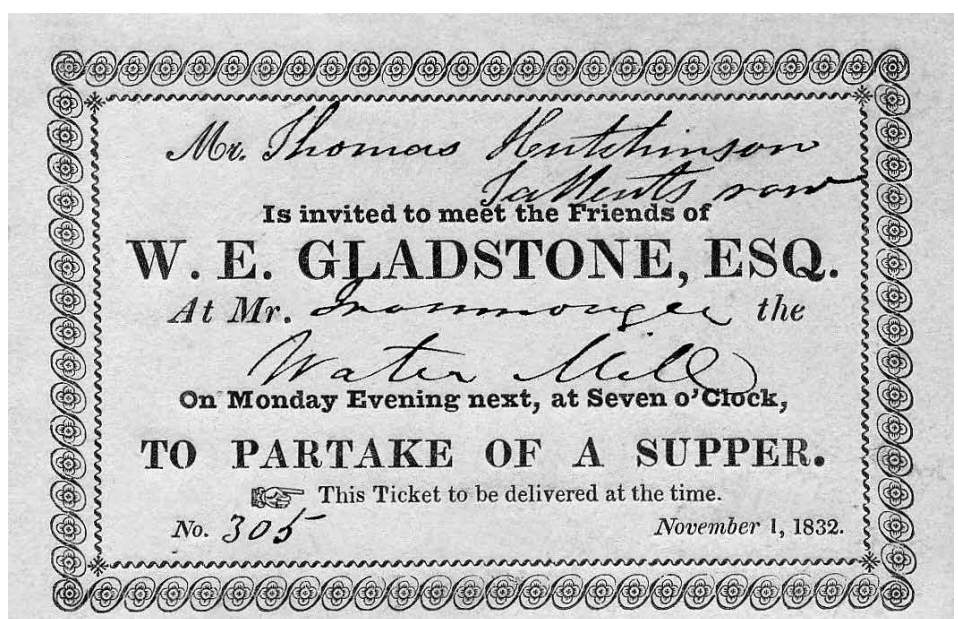 Mr. Thomas Hutchinson
Tallents row
Is invited to meet the Friends of
W. E. GLADSTONE, ESQ.
At Mr. Ironmonger the
Water Mill
On Monday Evening next, at Seven o'Clock,
TO PARTAKE OF A SUPPER.
☞ This Ticket to be delivered at the time.
No. 305 November 1, 1832.